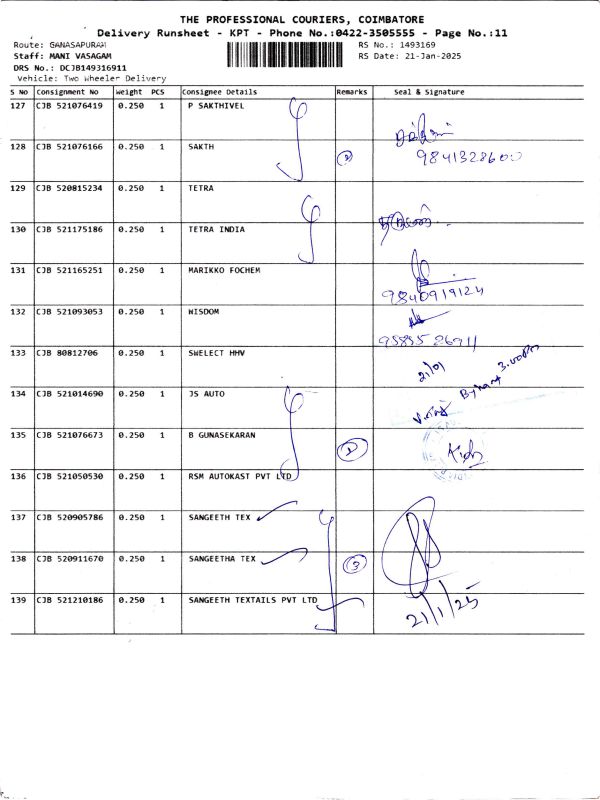 THE PROFESSIONAL COURIERS, COIMBATORE
Delivery Runsheet - KPT - Phone No.:0422-3505555 - Page No.:11
Route: GANASAPURAM
RS No.: 1493169
Staff: MANI VASAGAM
RS Date: 21-Jan-2025
DRS No.: DCJB149316911
Vehicle: Two Wheeler Delivery
S No Consignment No Weight PCS Consignee Details Remarks Seal & Signature
127 CJB 521076419 0.250 1 P SAKTHIVEL
128 CJB 521076166 0.250 1 SAKTH 2
9841328600
129 CJB 520815234 0.250 1 TETRA
130 CJB 521175186 0.250 1 TETRA INDIA
131 CJB 521165251 0.250 1 MARIKKO FOCHEM
9840919124
132 CJB 521093053 0.250 1 WISDOM
133 CJB 80812706 0.250 1 SWELECT HHV
21/01
3.00Pm
134 CJB 521014690 0.250 1 JS AUTO
135 CJB 521076673 0.250 1 B GUNASEKARAN
136 CJB 521050530 0.250 1 RSM AUTOKAST PVT LTD
137 CJB 520905786 0.250 1 SANGEETH TEX
138 CJB 520911670 0.250 1 SANGEETHA TEX 3
139 CJB 521210186 0.250 1 SANGEETH TEXTAILS PVT LTD
21/1/25